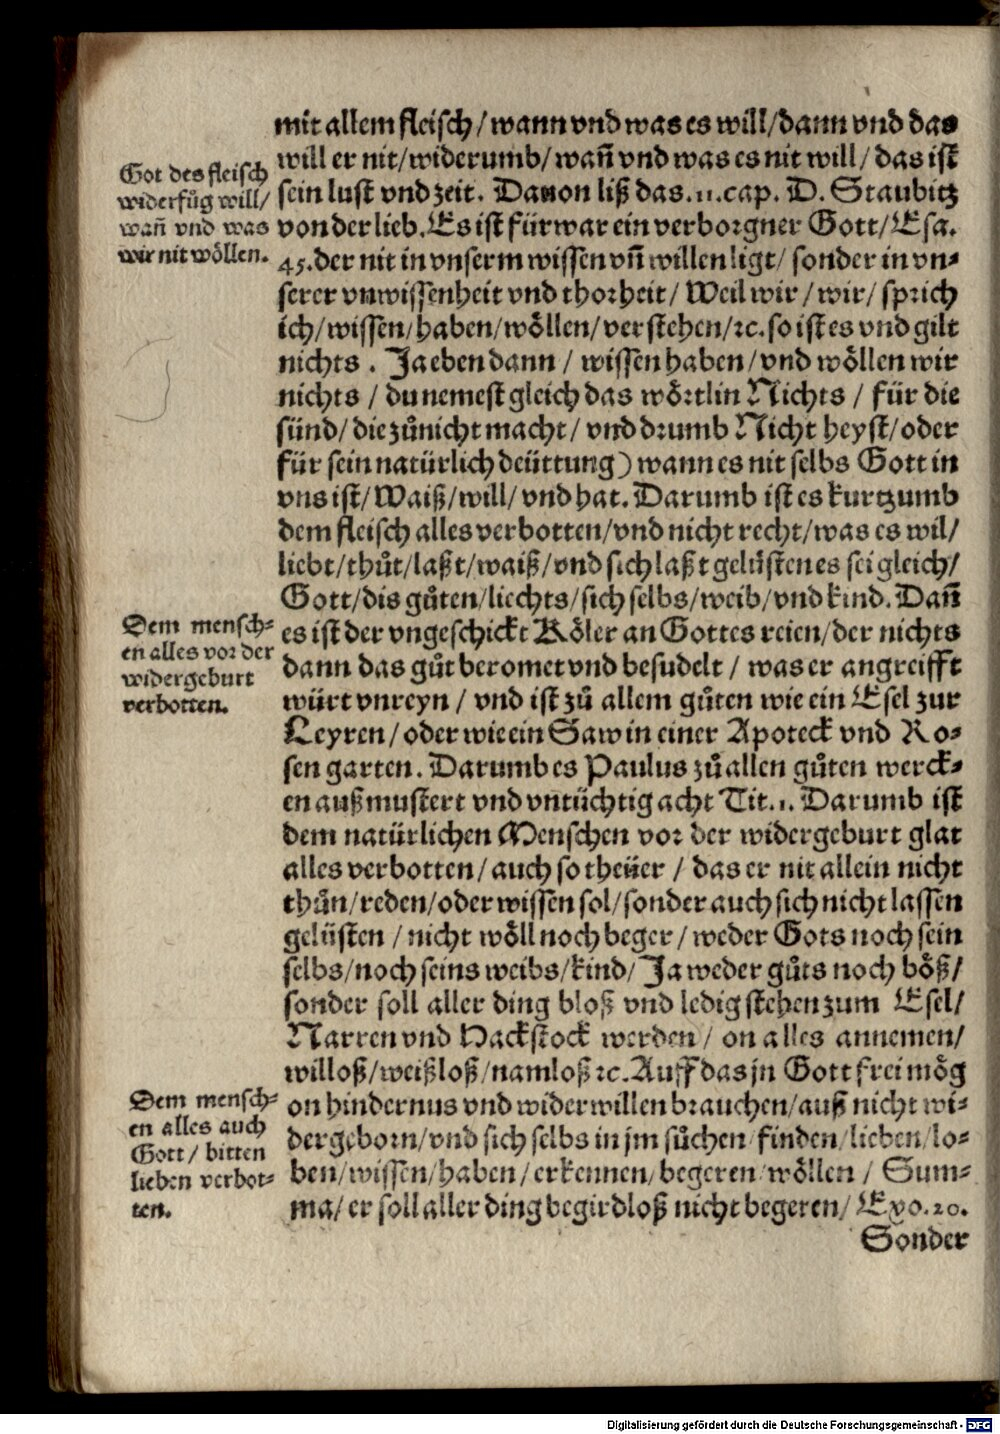 mit allem fleisch / wann vnd was es will / dann vnd das
will er nit / widerumb / wañ vnd was es nit will / das ist
sein lust vnd zeit. Dauon liß das. 11. cap. D. Staubitz
von der lieb. Es ist fürwar ein verborgner Gott / Esa.
45. der nit in vnserm wissen vñ willen ligt / sonder in vn-
serer vnwissenheit vnd thorheit / Weil wir / wir / sprich
ich / wissen / haben / wöllen / verstehen / ꝛc. so ist es vnd gilt
nichts . Ja eben dann / wissen haben / vnd wöllen wir
nichts / du nemest gleich das wörtlin Nichts / für die
sünd / die zůnicht macht / vnd drumb Nicht heyst / oder
für sein natürlich deüttung) wann es nit selbs Gott in
vns ist / Waiß / will / vnd hat. Darumb ist es kurtzumb
dem fleisch alles verbotten / vnd nicht recht / was es wil /
liebt / thůt / laßt / waiß / vnd sich laßt gelüsten es sei gleich /
Gott / dis gůten / liechts / sich selbs / weib / vnd kind. Dañ
es ist der vngeschickt Köler an Gottes reien / der nichts
dann das gůt beromet vnd besudelt / was er angreifft
würt vnreyn / vnd ist zů allem gůten wie ein Esel zur
Leyren / oder wie ein Saw in einer Apoteck vnd Ro-
sen garten. Darumb es Paulus zů allen gůten werck-
en außmustert vnd vntüchtig acht Tit. 1. Darumb ist
dem natürlichen Menschen vor der widergeburt glat
alles verbotten / auch so theüer / das er nit allein nicht
thůn / reden / oder wissen sol / sonder auch sich nicht lassen
gelüsten / nicht wöll noch beger / weder Gots noch sein
selbs / noch seins weibs / kind / Ja weder gůts noch böß /
sonder soll aller ding bloß vnd ledig stehen zum Esel /
Narren vnd Hackstock werden / on alles annemen /
willoß / weißloß / namloß ꝛc. Auff das jn Gott frei mög
on hindernus vnd widerwillen brauchen / auß nicht wi-
dergeborn / vnd sich selbs in jm sůchen finden / lieben / lo-
ben / wissen / haben / erkennen / begeren wöllen / Sum-
ma / er soll aller ding begirdloß nicht begeren / Exo. 20.
Sonder
Got des fleisch
widerfůg will /
wañ vnd was
wir nit wöllen.
Dem mensch-
en alles vor der
widergeburt
verbotten.
Dem mensch-
en alles auch
Gott / bitten
lieben verbot-
ten.
Digitalisierung gefördert durch die Deutsche Forschungsgemeinschaft - DFG